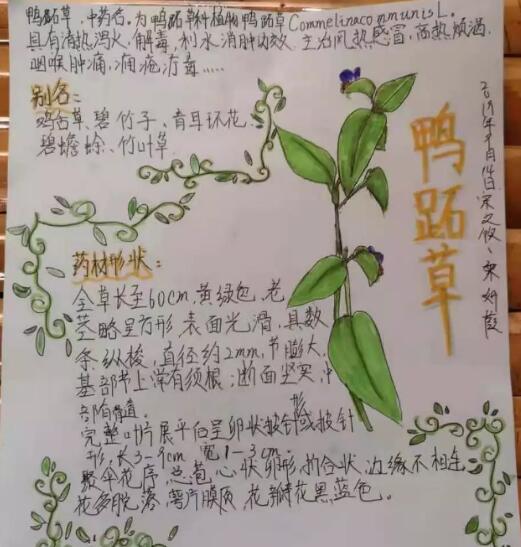 鸭跖草,中药名,为鸭跖草科植物鸭跖草Commelinacommunis L.
具有清热泻火,解毒,利水消肿功效.主治风热感冒,高热烦渴.
咽喉肿痛,痈疮疔毒.....
别名:
鸡舌草、碧竹子、青耳环花、
碧蟾蜍、竹叶草.
药材形状:
全草长至60cm,黄绿色,老
茎略呈方形,表面光滑,具数
条纵棱,直径约2mm,节膨大,
基部节上常有须根;断面坚实,中
部有髓道。
完整叶片展平后呈卵状披针形或披针
形,长3-9cm,宽1-3cm.
聚伞花序,总苞心状卵形,折合状,边缘不相连,
花多脱落,萼片膜质,花瓣花黑蓝色。
鸭跖草
月14日